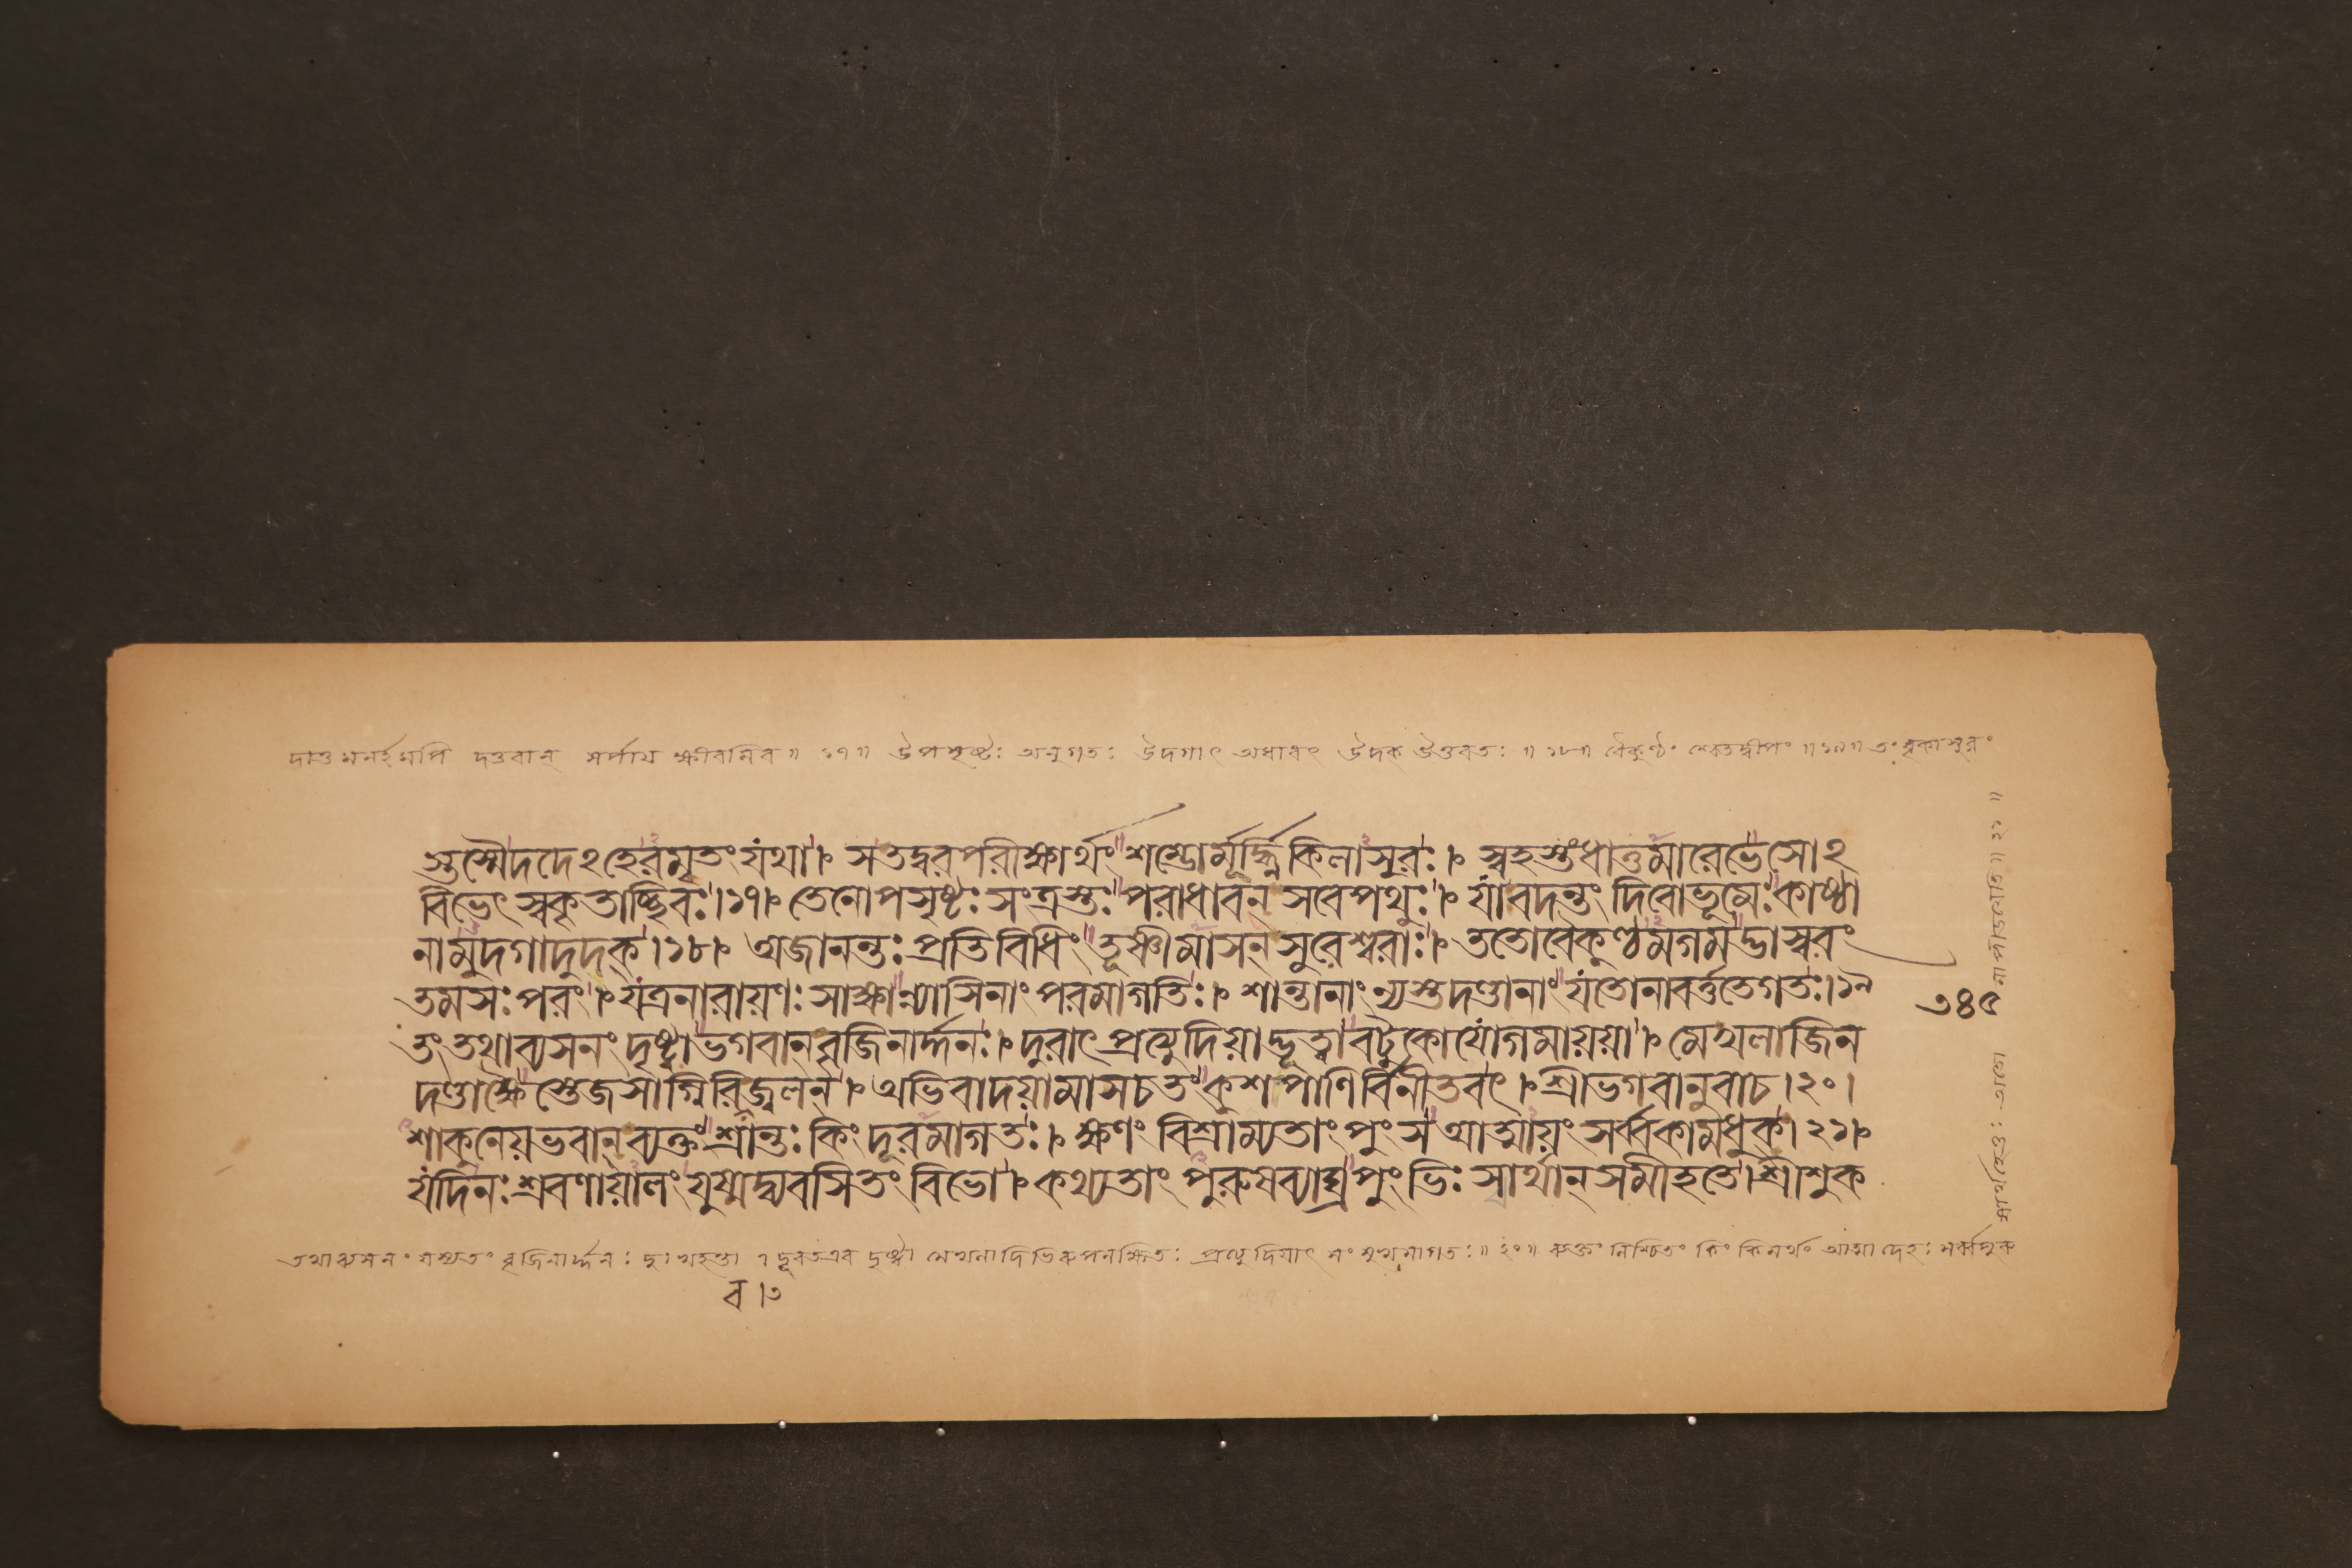 দাতুমনর্হমপি দত্তবান্ সর্পায় ক্ষীরমিব॥ ১৭॥ উপসৃষ্টঃ অনুগতঃ উদগাৎ অধাবৎ উদক্ উত্তরতঃ॥ ১৮॥ বৈকুণ্ঠং শ্বেতদ্বীপং॥ ১৯॥ তং বৃকাসুরং
স্তস্মৈদদেঽহেরমৃতং যথা। সতদ্বরপরীক্ষার্থং শম্ভোর্মূর্দ্ধ্নি কিলাসুরঃ। স্বহস্তং ধাতুমারেভে সোঽ
বিভেৎ স্বকৃতাচ্ছিবঃ।১৭। তেনোপসৃষ্টঃ সংত্রস্তঃ পরাধাবন্ সবেপথুঃ। যাবদন্তং দিবোভূমেঃ কাষ্ঠা
নামুদগাদুদক্।১৮। অজানন্তঃ প্রতিবিধিং তূষ্ণীমাসন্ সুরেশ্বরাঃ। ততোবৈকুণ্ঠমগমদ্ভাস্বরং
তমসঃ পরং। যত্রনারায়ণঃ সাক্ষান্ন্যাসিনাং পরমাগতিঃ। শান্তানাং ন্যস্তদণ্ডানাং যতোনাবর্ত্ততেগতঃ।১৯
তং তথাব্যসনং দৃষ্ট্বা ভগবান্ বৃজিনার্দ্দনঃ। দুরাৎ প্রত্যুদিয়াদ্ভূত্বা বটুকোযোগমায়য়া। মেখলাজিন
দণ্ডাক্ষৈস্তেজসাগ্নিরিবজ্বলন্। অভিবাদয়ামাসচতং কুশপাণির্বিনীতবৎ। শ্রীভগবানুবাচ।২০।
শাকুনেয়ভবান্ ব্যক্তং শ্রান্তঃ কিং দূরমাগতঃ। ক্ষণং বিশ্রাম্যতাং পুংস আত্মায়ং সর্ব্বকামধুক্।২১।
যদিনঃ শ্রবণায়ালং যুষ্মদ্ব্যবসিতং বিভো। কথ্যতাং পুরুষব্যাঘ্র পুংভিঃ স্বার্থান্ সমীহতে। শ্রীশুক
তথাব্যসনং বৃজিনার্দ্দনঃ দুঃখহন্তা । দূরতএব দৃষ্ট্বা মেখলাদিভিরুপলক্ষিতঃ প্রত্যুদিয়াৎ সংমুখমাগতঃ॥ ২০॥ ব্যক্তং নিশ্চিতং কিং কিমর্থং আত্মা দেহঃ সর্ব্বকামধুক্
ব।৩
সর্ব্বার্থহেতুঃ অতো
মাপীড়য়েতি॥ ২১॥
৩৪৫